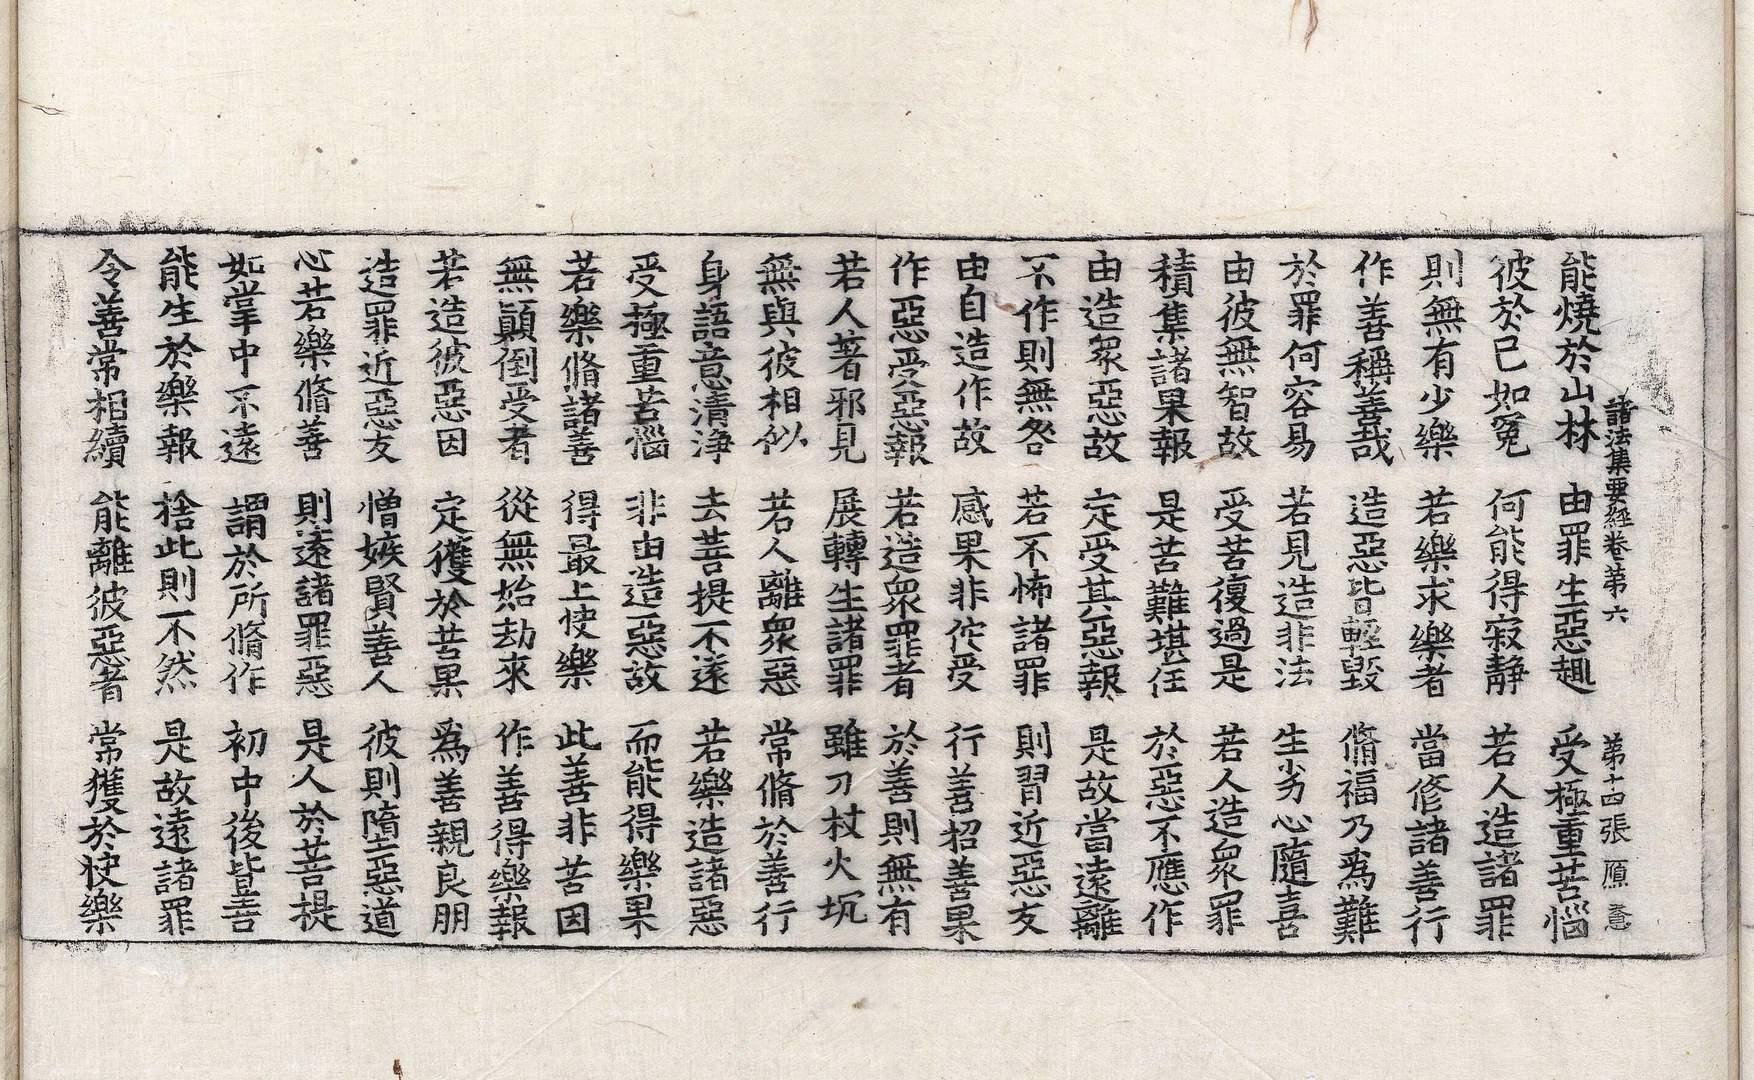 諸法集要經卷第六 第十四張 㒣
能燒於山林 由罪生惡趣 受極重苦惱
彼於己如冤 何能得寂靜 若人造諸罪
則無有少樂 若樂求樂者 當修諸善行
作善稱善哉 造惡皆輕毀 脩福乃爲難
於罪何容易 若見造非法 生劣心隨喜
由彼無智故 受苦復過是 若人造衆罪
積集諸果報 是苦難堪任 於惡不應作
由造衆惡故 定受其惡報 是故當遠離
不作則無咎 若不怖諸罪 則習近惡友
由自造作故 感果非佗受 行善招善果
作惡受惡報 若造衆罪者 於善則無有
若人著邪見 展轉生諸罪 雖刀杖火坑
無與彼相似 若人離衆惡 常脩於善行
身語意清淨 去菩提不遠 若樂造諸惡
受極重苦惱 非由造惡故 而能得樂果
若樂脩諸善 得最上快樂 此善非苦因
無顚倒受者 從無始劫來 作善得樂報
若造彼惡因 定獲於苦果 爲善親良朋
造罪近惡友 憎嫉賢善人 彼則墮惡道
心若樂脩善 則遠諸罪惡 是人於菩提
如掌中不遠 謂於所脩作 初中後皆善
能生於樂報 捨此則不然 是故遠諸罪
令善常相續 能離彼惡者 常獲於快樂